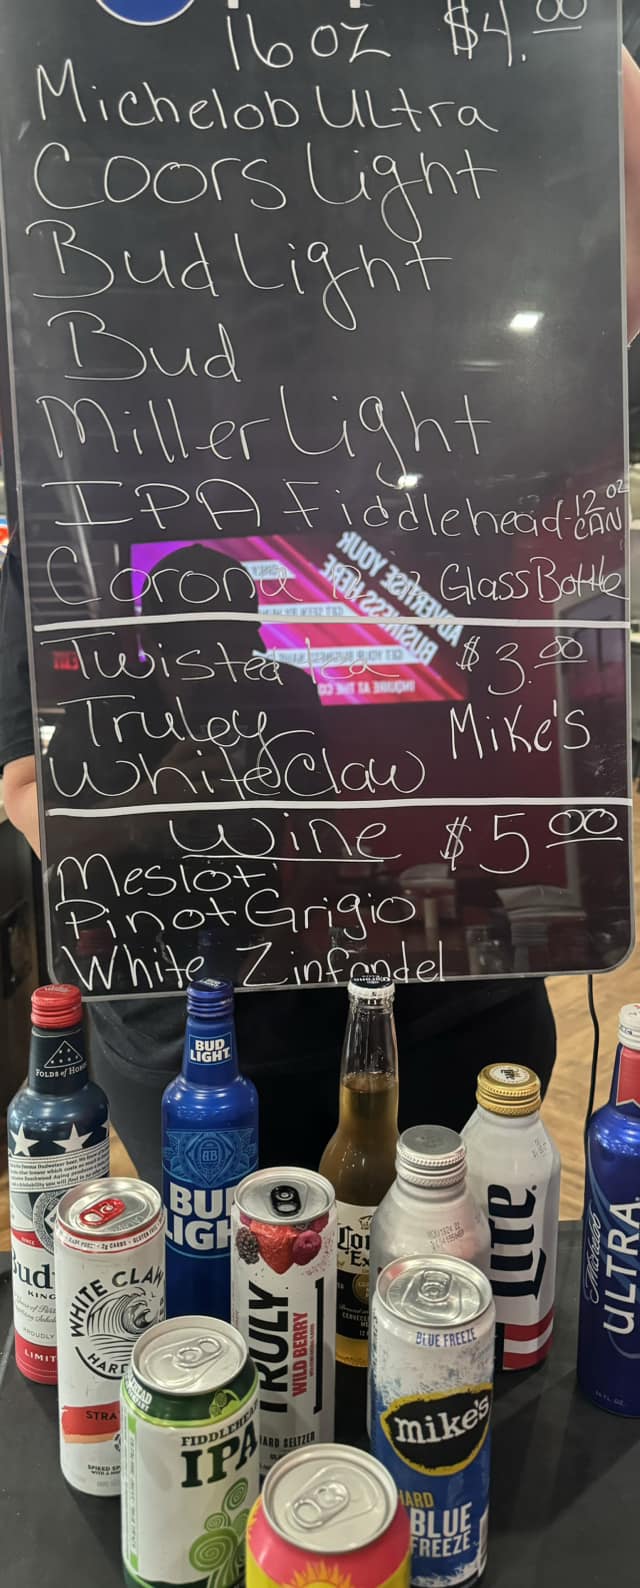 16 oz $4.00
Michelob ULtra
Coors Light
Bud Light
Bud
Miller Light
IPA Fiddlehead-12 oz CAN
Corona Glass Bottle
Twisted Tea $3.00
Truley Mike's
White Claw
Wine $5 00
Meslot
Pinot Grigio
White Zinfandel
ADVERTISE YOUR
BUSINESS HERE
EXIT
FOLDS of HONOR
BUD
LIGHT
BUD
LIGHT
Bud
KING
LIMIT
WHITE CLAW
HARD
STRA
TRULY
WILD BERRY
HARD SELTZER
Lite
Michelob
ULTRA
BLUE FREEZE
mike's
HARD
BLUE
FREEZE
FIDDLEHEAD
IPA